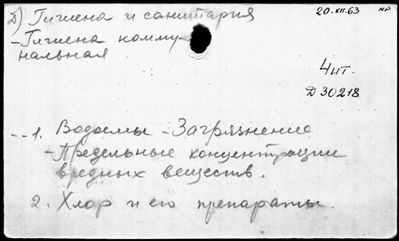 Д) Гигиена и санитария
20.XII.63 нр
-Гигиена комму-
нальная
4шт.
Д30218
1. Водоемы -Загрязнение
-Предельные концентрации
вредных веществ.
2. Хлор и его препараты.